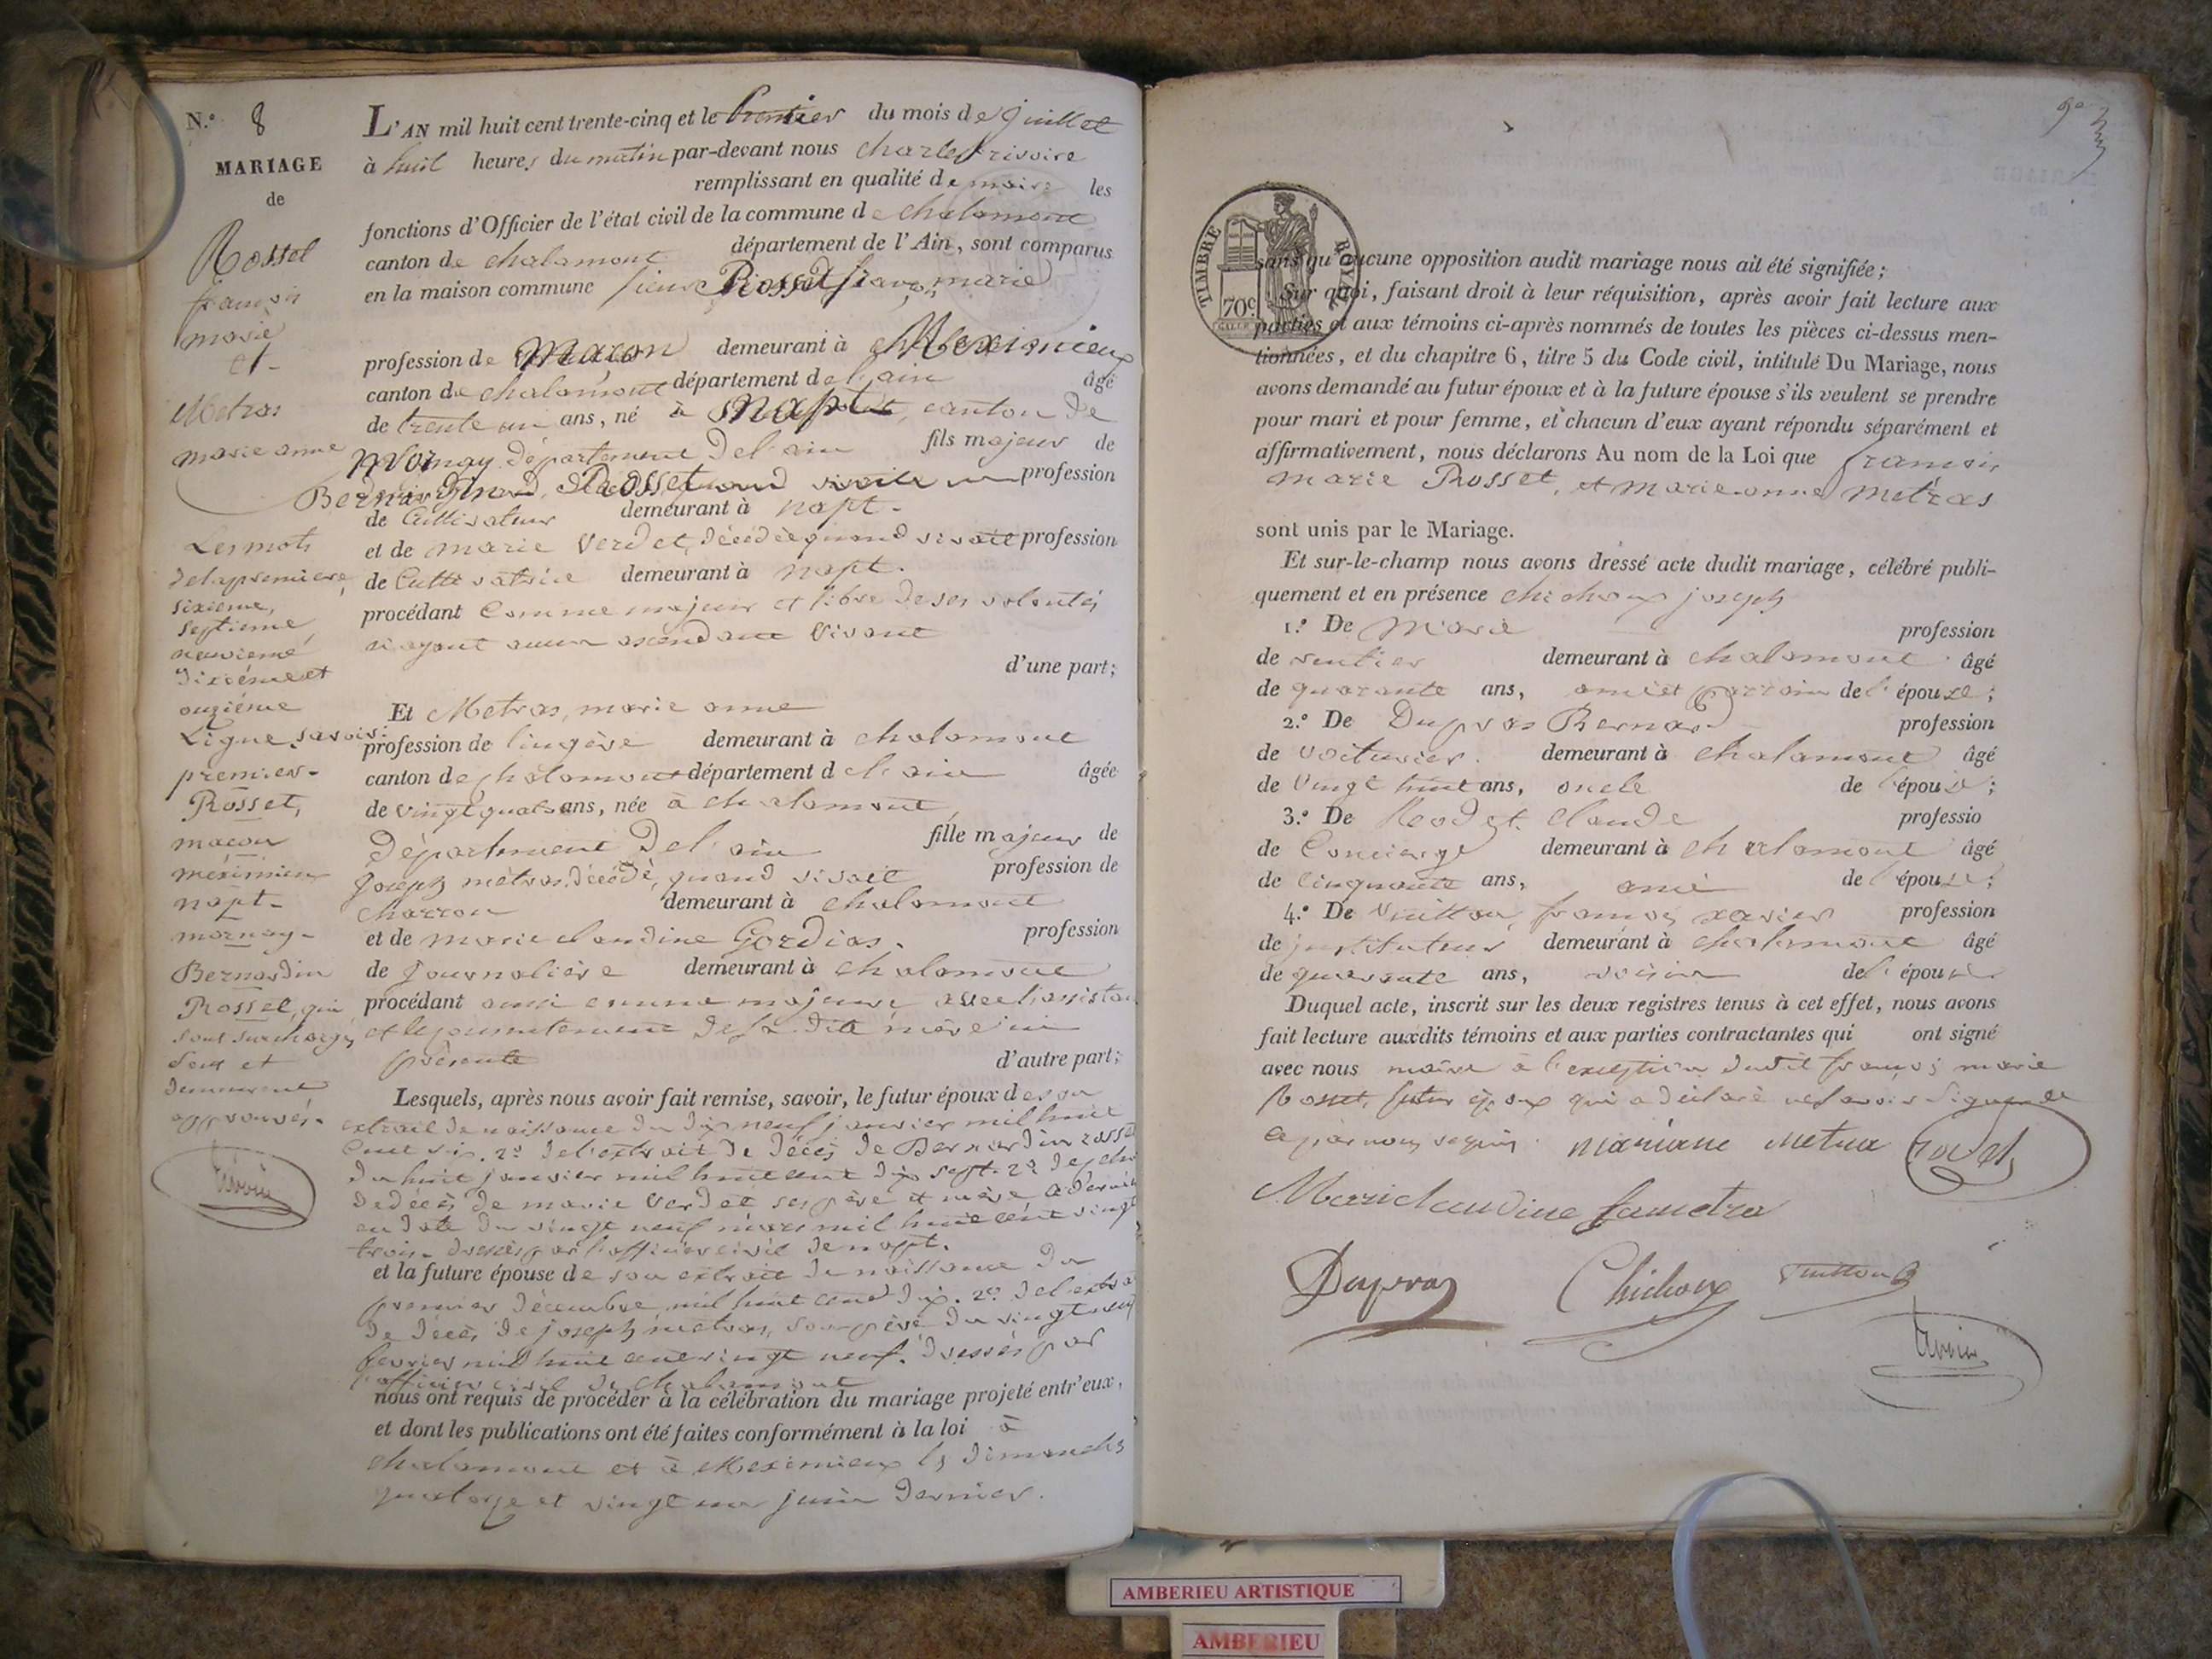 N.° 8
MARIAGE
de
Rosset
françois
marie
et
Metras
marie anne
Les mots
de la premiere,
sixieme,
septieme,
neuvieme
dixiéme et
onziéme
Ligne savoir:
premier-
Rosset,
macon
meximieu
napt-
mornay-
Bernardin
Rosset, qui
sont surchargés
sont et
demeurent
approuvés.
L'AN mil huit cent trente-cinq et le premier du mois de juillet
à huit heures du matin par-devant nous charles rivoire
remplissant en qualité de maire les
fonctions d'Officier de l'état civil de la commune de chalamont
canton de chalamont département de l'Ain, sont comparus
en la maison commune sieur Rosset françois marie
profession de macon demeurant à Meximieux
canton de chalamont département de l'ain âgé
de trente un ans, né à Napt, canton de
Mornay département de l'ain fils majeur de
Bernardin Rosset quand vivait profession
de Cultivateur demeurant à napt.
et de marie Verdet, décédée quand vivait profession
de Cultivatrice demeurant à napt.
procédant comme majeur et libre de ses volontés
n'ayant aucun ascendant vivant
d'une part;
Et Metras, marie anne
profession de lingère demeurant à chalamont
canton de chalamont département de l'ain âgée
de vingt quatre ans, née à chalamont,
département de l'ain fille majeur de
joseph métras, décédé, quand vivait profession de
charron demeurant à chalamont
et de marie claudine Gordias. profession
de journalière demeurant à chalamont
procédant aussi comme majeure, avec l'assistance
et le consentement de sa dite mère ici
présente d'autre part;
Lesquels, après nous avoir fait remise, savoir, le futur époux de son
extrait de naissance du dix neuf janvier mil huit
cent six. 2° de l'extrait de décès de Bernardin rosset
du huit janvier mil huit cent dix sept. 2°
de décès de marie Verdet ses père et mère
en date du vingt neuf mars mil huit cent vingt
trois. dressés par l'officier civil de napt.
et la future épouse de son extrait de naissance du
premier décembre mil huit cent dix. 2° de l'extrait
de décès de joseph metras, son père du vingt neuf
fevrier mil huit cent vingt neuf. dressés par
l'officier civil de chalamont
nous ont requis de procéder à la célébration du mariage projeté entr'eux,
et dont les publications ont été faites conformément à la loi à
chalamont et à Meximieux les dimanches
quatorze et vingt un juin dernier.
TIMBRE ROYAL
70c.
sans qu'aucune opposition audit mariage nous ait été signifiée;
Sur quoi, faisant droit à leur réquisition, après avoir fait lecture aux
parties et aux témoins ci-après nommés de toutes les pièces ci-dessus men-
tionnées, et du chapitre 6, titre 5 du Code civil, intitulé Du Mariage, nous
avons demandé au futur époux et à la future épouse s'ils veulent se prendre
pour mari et pour femme, et chacun d'eux ayant répondu séparément et
affirmativement, nous déclarons Au nom de la Loi que françois
marie Rosset, et marie-anne metras
sont unis par le Mariage.
Et sur-le-champ nous avons dressé acte dudit mariage, célébré publi-
quement et en présence chichoux joseph
1.° De Marie profession
de rentier demeurant à chalamont âgé
de quarante ans, ami et parrain de l'épouse;
2.° De Dupras Bernard profession
de voiturier. demeurant à chalamont âgé
de vingt huit ans, oncle de l'épouse;
3.° De Rodet claude professio
de Concierge demeurant à chalamont âgé
de cinquante ans, ami de l'épouse;
4.° De Vuitton françois xavier profession
de instituteur demeurant à chalamont âgé
de quarante ans, voisin de l'épouse
Duquel acte, inscrit sur les deux registres tenus à cet effet, nous avons
fait lecture auxdits témoins et aux parties contractantes qui ont signé
avec nous maire à l'exception dudit françois marie
Rosset, futur époux qui a déclaré ne savoir signer de
ce par nous requis. mariane Metra Rodet
Mariclaudine fametra
Dupras Chichoux Vuitton
rivoire
AMBERIEU ARTISTIQUE
AMBERIEU